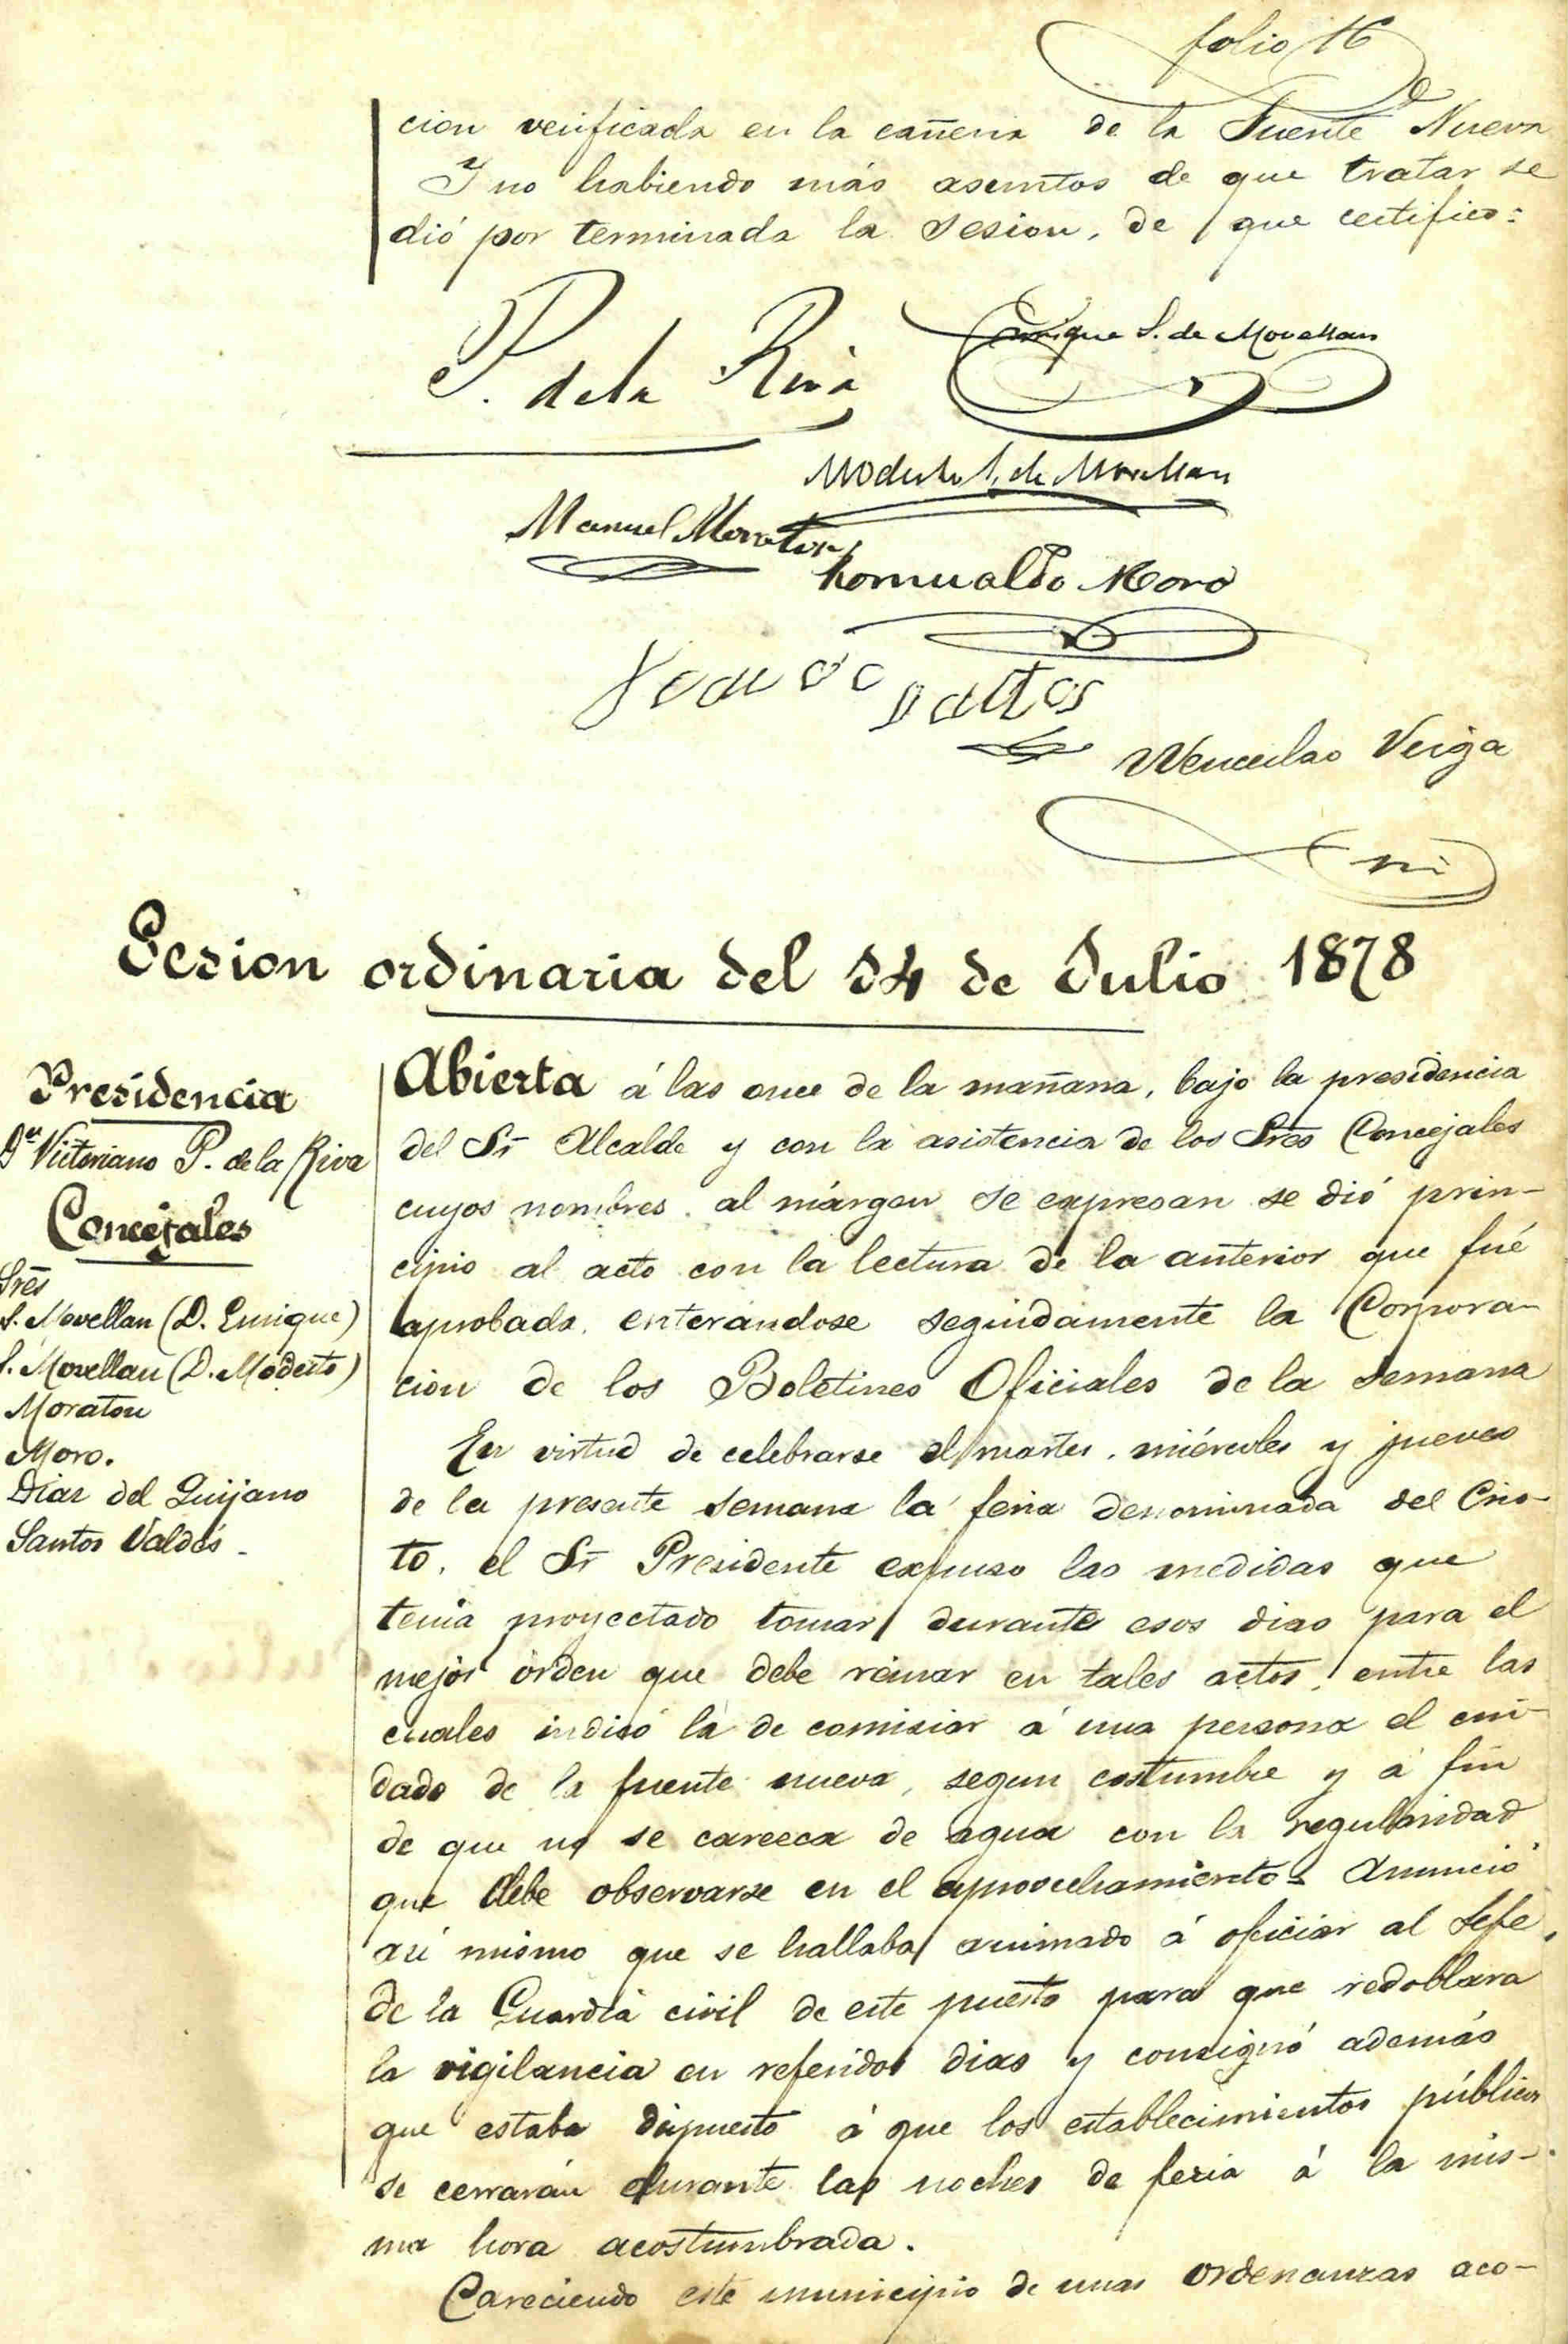 folio 16
cion verificada en la cañeria de la Fuente Nueva
Y no habiendo más asuntos de que tratar se
dió por terminada la sesion, de que certifico:
P. de la Riva
Enrique S. de Movellan
Modesto S. de Movellan
Manuel Moraton
Romualdo Moro
Santos
Wenceslao Veiga
Sesion ordinaria del 14 de Julio 1878
Presidencia
Dn Victoriano P. de la Riva
Concejales
Sres
S. Movellan (D. Enrique)
S. Movellan (D. Modesto)
Moraton
Moro.
Diaz del Quijano
Santos Valdés.
Abierta á las once de la mañana, bajo la presidencia
del Sr Alcalde y con la asistencia de los Sres Concejales
cuyos nombres al márgen se expresan se dió prin-
cipio al acto con la lectura de la anterior que fué
aprobada, enterandose seguidamente la Corpora-
cion de los Boletines Oficiales de la semana
En virtud de celebrarse el martes, miércoles y jueves
de la presente semana la feria denominada del Cris-
to, el Sr Presidente expuso las medidas que
tenia proyectado tomar durante esos dias para el
mejor órden que debe reinar en tales actos, entre las
cuales indicó la de comisiar á una persona el cui-
dado de la fuente nueva, segun costumbre y á fin
de que no se careeca de agua con la regularidad
que debe observarse en el aprovechamiento. Anunció
así mismo que se hallaba animado á oficiar al Jefe
de la Guardia civil de este puesto para que redoblara
la vigilancia en referidos dias y consignó además
que estaba dispuesto á que los establecimientos públicos
se cerrarán durante las noches de feria á la mis-
ma hora acostumbrada.
Careciendo este municipio de unas ordenanzas aco-